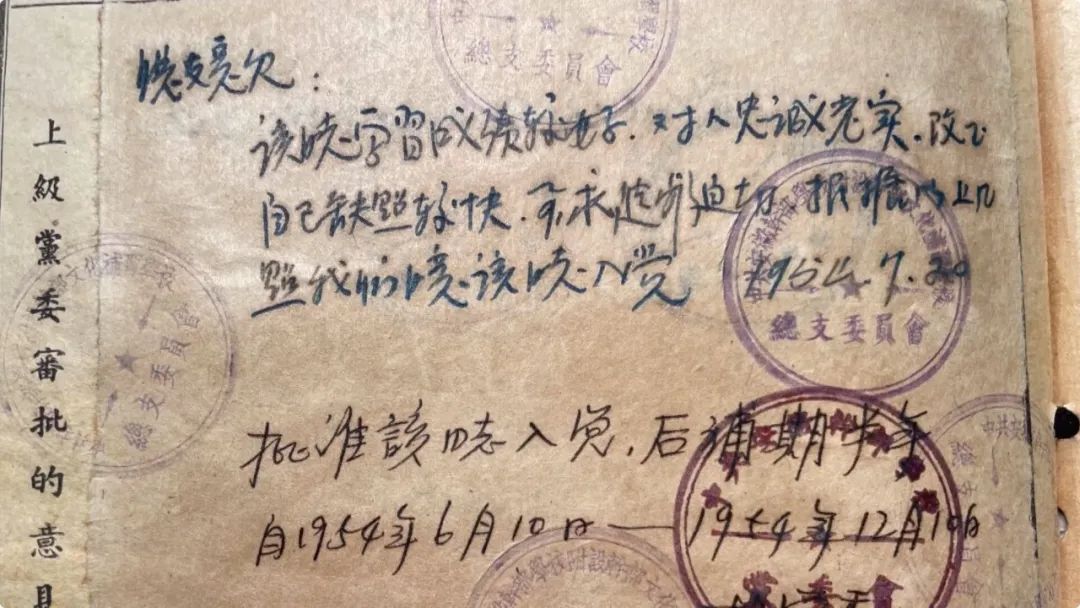 上級黨委審批的意見
总支意见：
该同志学習成績较好．对人忠诚老实．改正
自己缺點较快．要求進步迫切．根據以上几
點我们同意该同志入党 1954.7.20
批准該同志入党，后補期半年
自1954年6月10日——1954年12月10日
總支委員會
總支委員會
總支委員會
黨委會